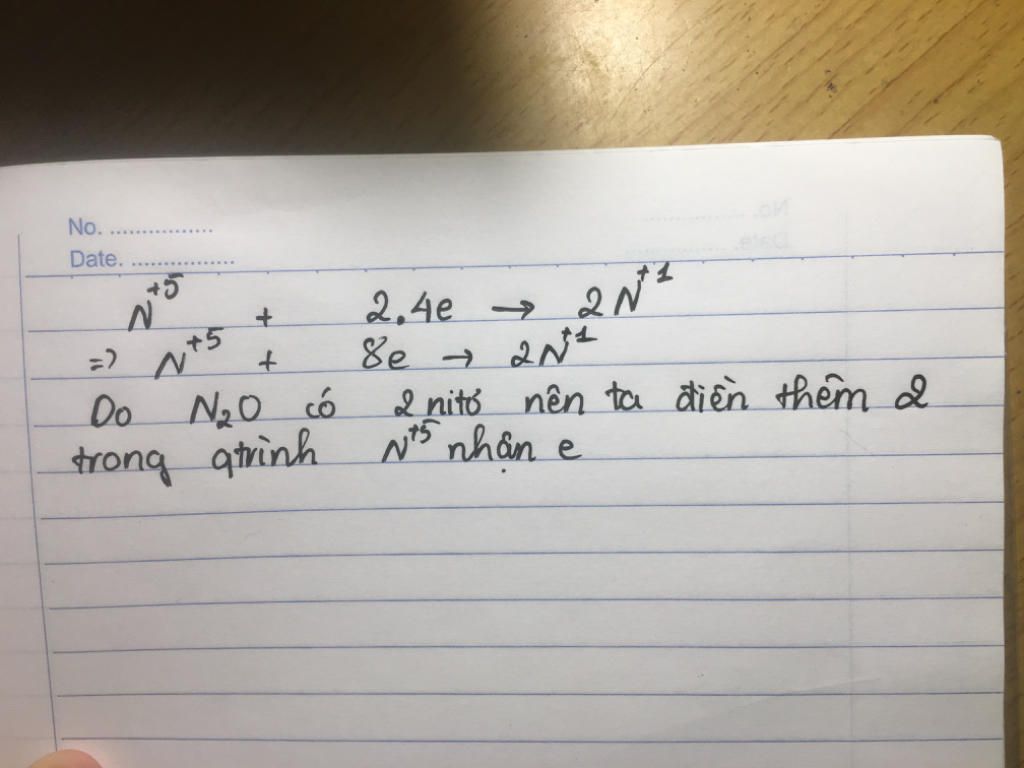 No. ................
Date. ................
N⁺⁵ + 2.4e → 2N⁺¹
=> N⁺⁵ + 8e → 2N⁺¹
Do N₂O có 2 nitơ nên ta điền thêm 2
trong qtrình N⁺⁵ nhận e